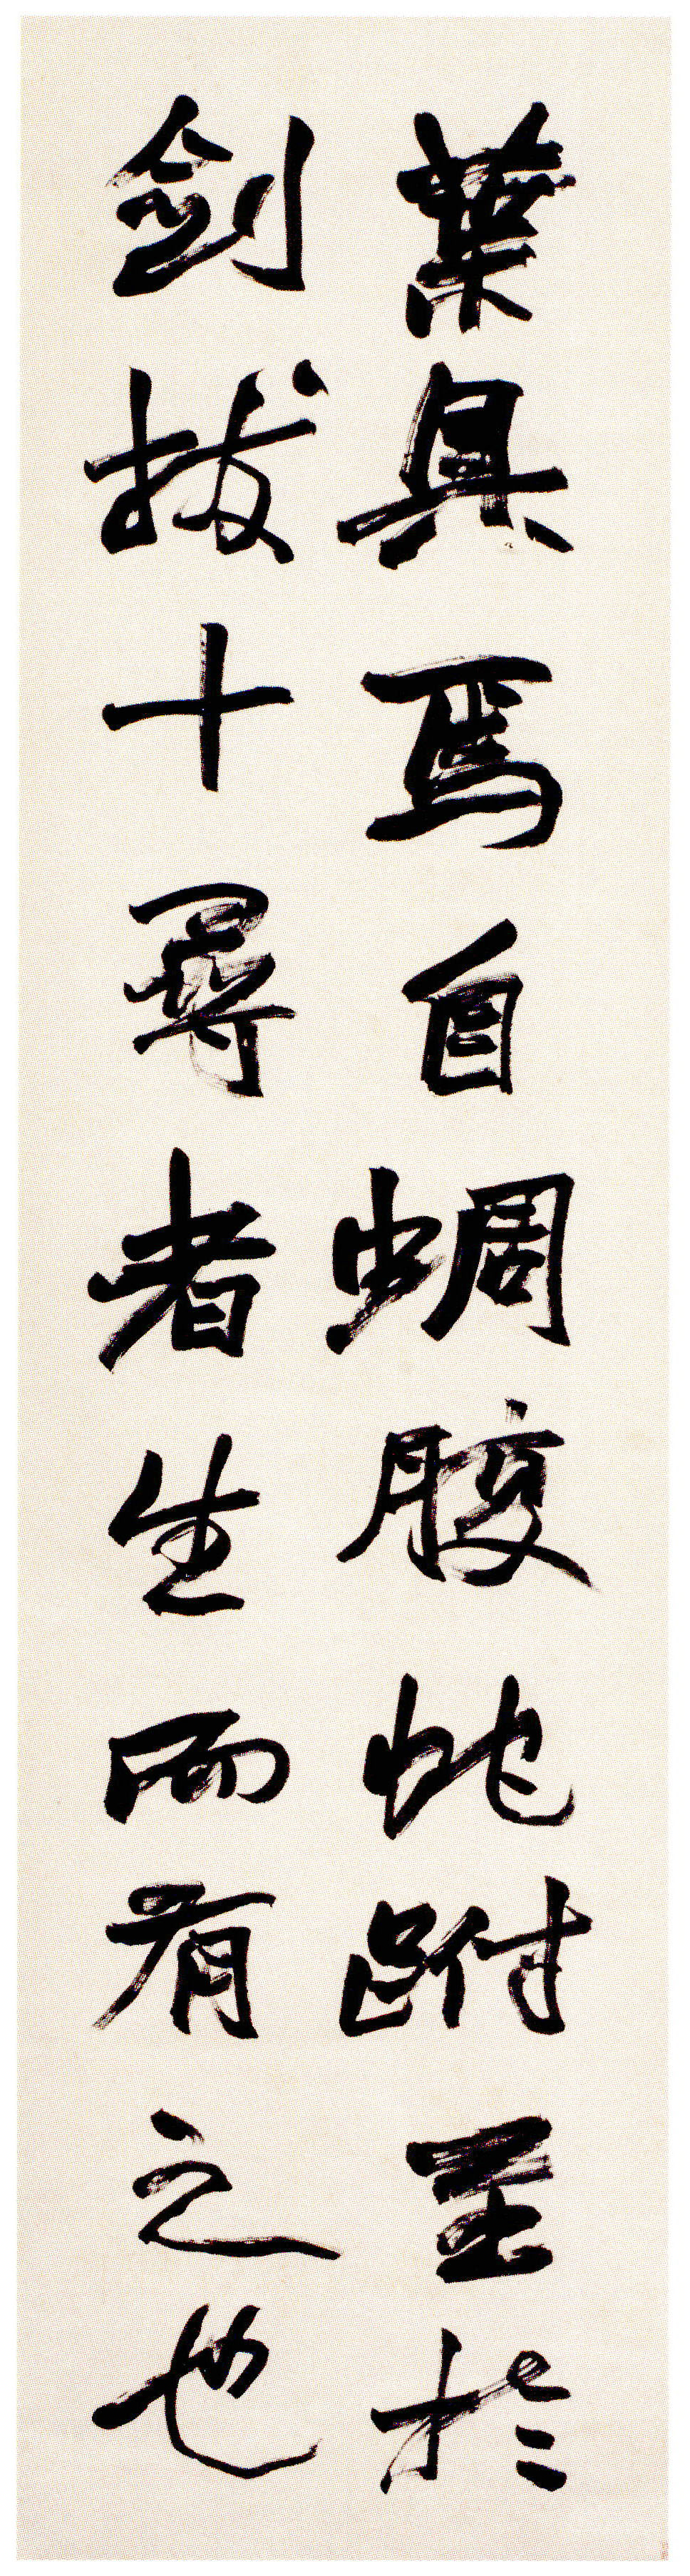 葉具焉自蜩腹蛇蚹至於
劍拔十尋者生而有之也